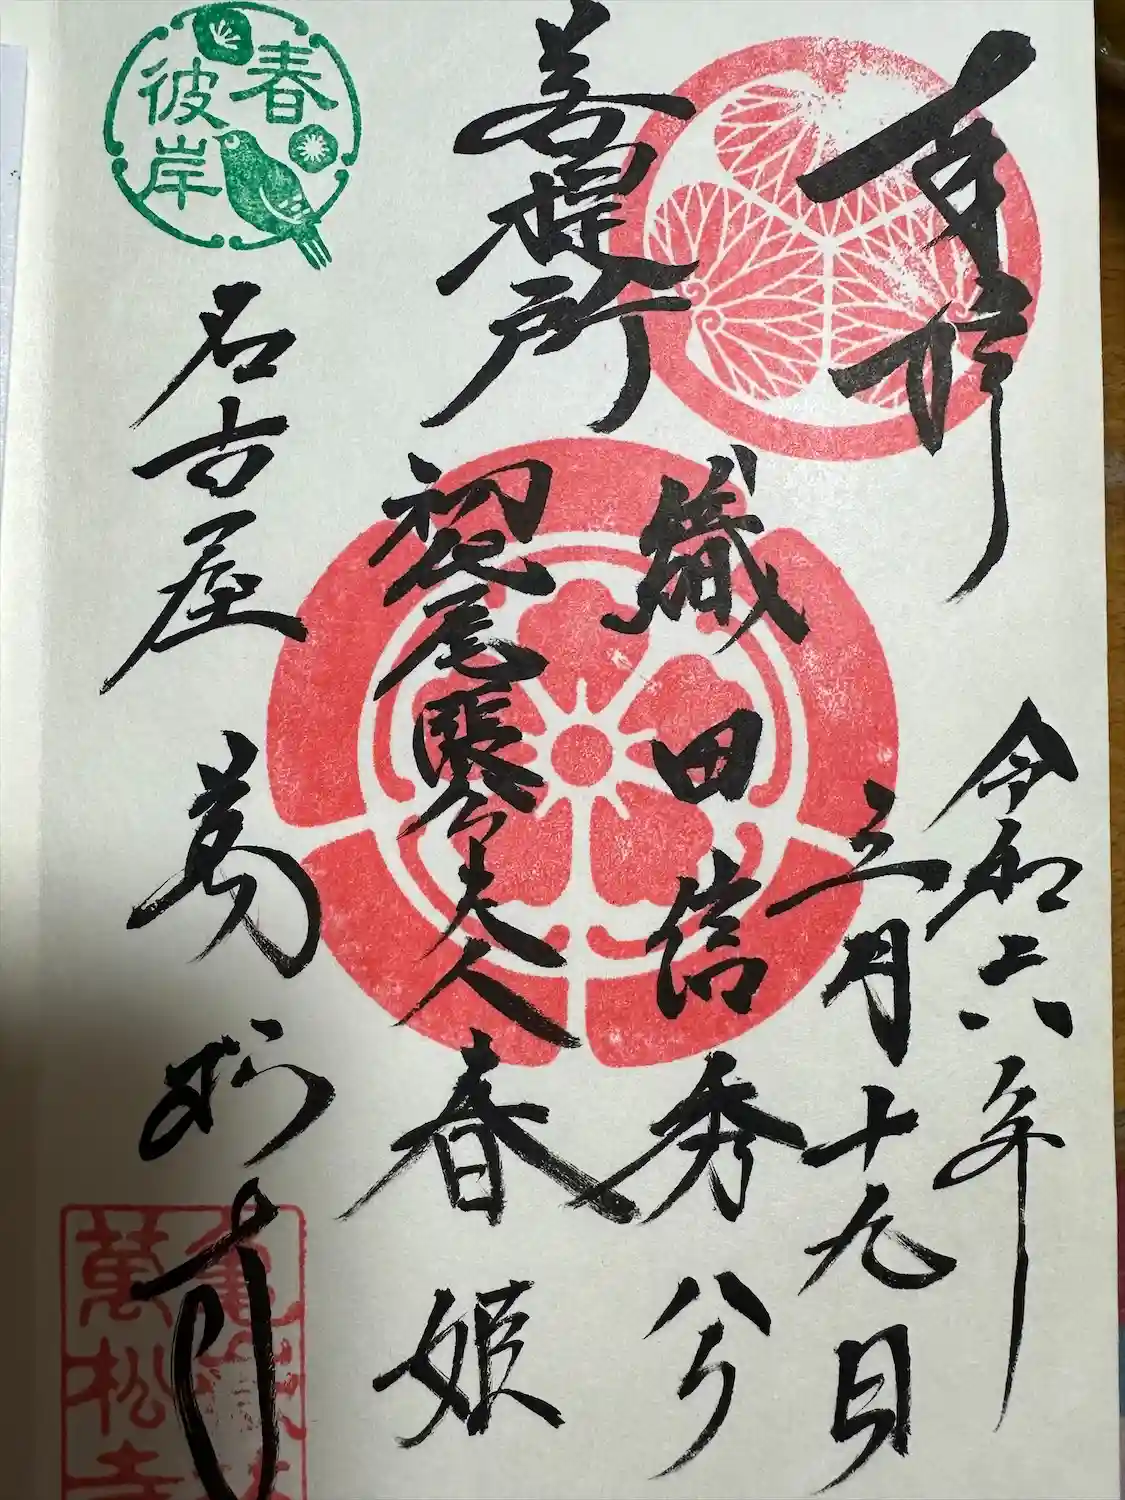 奉拝
令和六年
三月十九日
菩提所
織田信秀公
初代尾張公夫人春姫
春
彼岸
名古屋
萬松寺
萬松寺